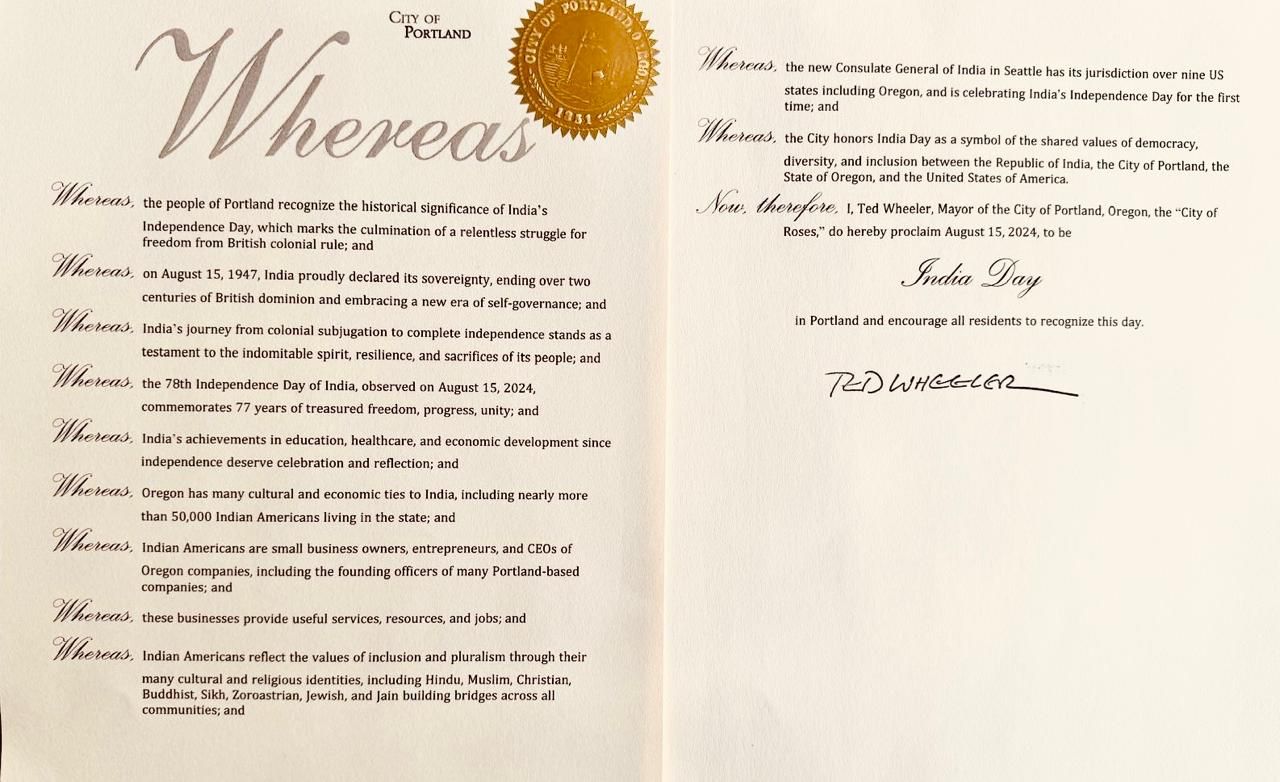 City of
Portland
CITY OF PORTLAND, OREGON
1851
Whereas
Whereas, the people of Portland recognize the historical significance of India's
Independence Day, which marks the culmination of a relentless struggle for
freedom from British colonial rule; and
Whereas, on August 15, 1947, India proudly declared its sovereignty, ending over two
centuries of British dominion and embracing a new era of self-governance; and
Whereas, India's journey from colonial subjugation to complete independence stands as a
testament to the indomitable spirit, resilience, and sacrifices of its people; and
Whereas, the 78th Independence Day of India, observed on August 15, 2024,
commemorates 77 years of treasured freedom, progress, unity; and
Whereas, India's achievements in education, healthcare, and economic development since
independence deserve celebration and reflection; and
Whereas, Oregon has many cultural and economic ties to India, including nearly more
than 50,000 Indian Americans living in the state; and
Whereas, Indian Americans are small business owners, entrepreneurs, and CEOs of
Oregon companies, including the founding officers of many Portland-based
companies; and
Whereas, these businesses provide useful services, resources, and jobs; and
Whereas, Indian Americans reflect the values of inclusion and pluralism through their
many cultural and religious identities, including Hindu, Muslim, Christian,
Buddhist, Sikh, Zoroastrian, Jewish, and Jain building bridges across all
communities; and
Whereas, the new Consulate General of India in Seattle has its jurisdiction over nine US
states including Oregon, and is celebrating India's Independence Day for the first
time; and
Whereas, the City honors India Day as a symbol of the shared values of democracy,
diversity, and inclusion between the Republic of India, the City of Portland, the
State of Oregon, and the United States of America.
Now, therefore, I, Ted Wheeler, Mayor of the City of Portland, Oregon, the “City of
Roses,” do hereby proclaim August 15, 2024, to be
India Day
in Portland and encourage all residents to recognize this day.
TED WHEELER